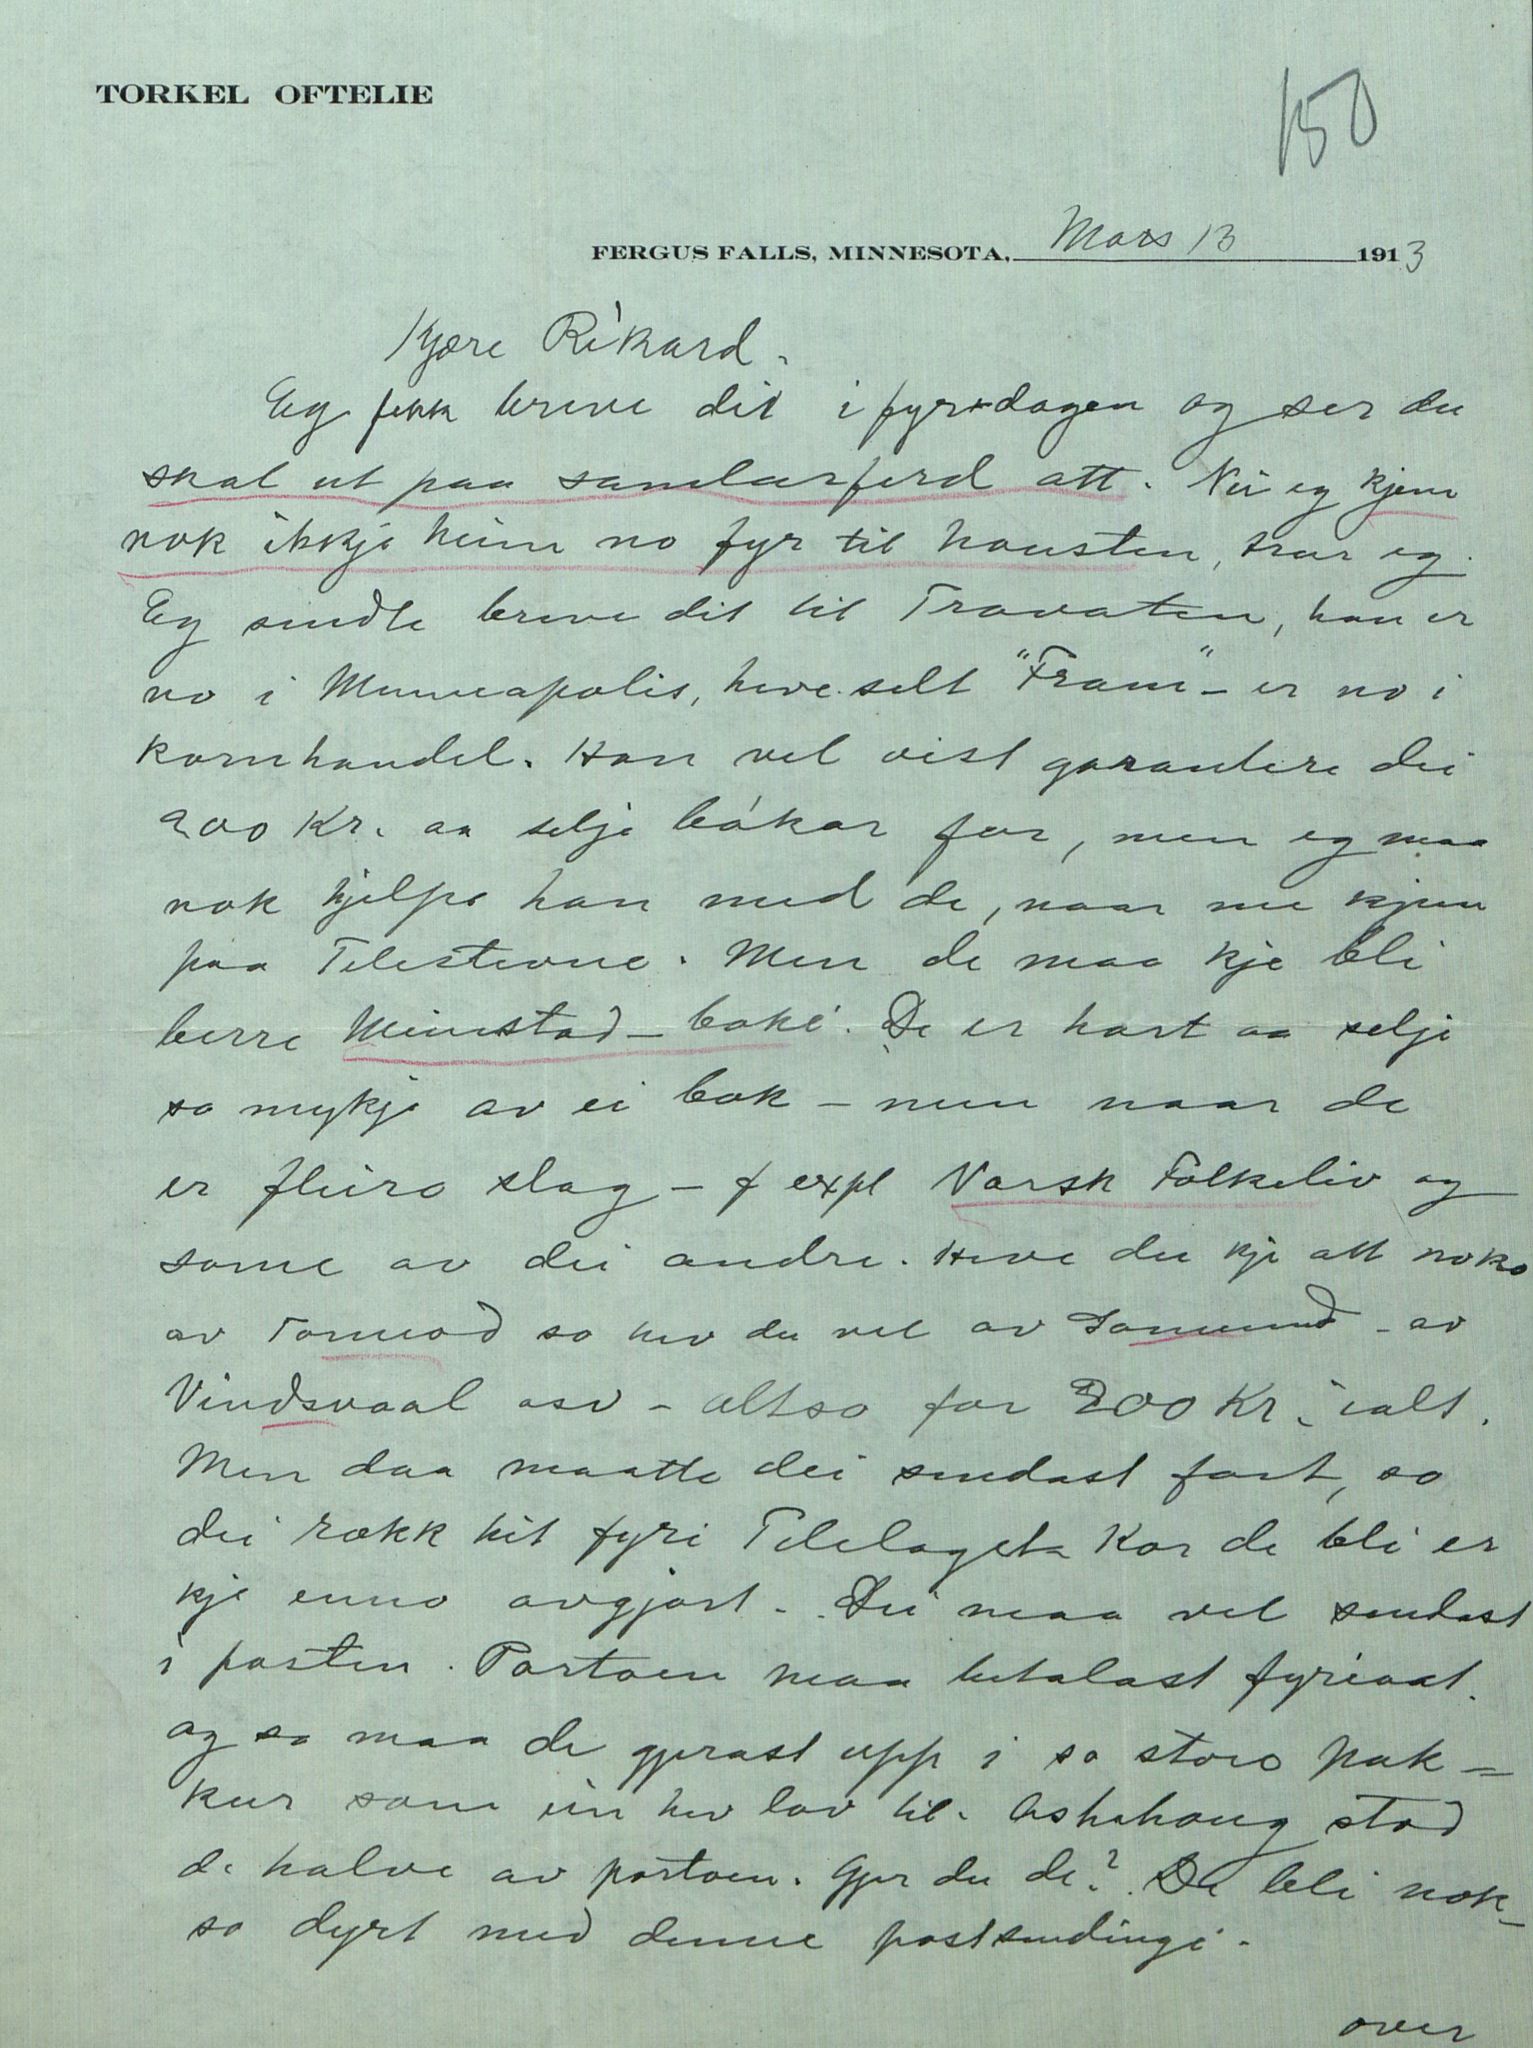 TORKEL OFTELIE
150
FERGUS FALLS, MINNESOTA, Mars 13 1913
Kjære Rikard.
Eg fekk breve dit i fyredagen og ser du
skal ut paa samlarferd att. Nei eg kjem
nok ikkje heim no fyr til hausten, trur eg.
Eg sendte breve dit til Trovaten, han er
no i Minneapolis, heve selt "Fram" - er no i
kornhandel. Han vel vist garantere dei
200 Kr. aa selje bókar for, men eg maa
nok hjelpe han med de, naar me kjem
paa Telestevne. Men de maa kje bli
berre Heimstad-boké. De er hart aa selje
so mykje av ei bok - men naar de
er fleiro slag - f expl Norsk Folkeliv og
some av dei andre. Heve du kje att noko
av Tormod so hev du vel av - av
Vindsvaal osv - altso for 200 Kr. ialt.
Men daa maatte dei sendast fort, so
dei rækk hit fyri Telelaget. Kor de bli er
kje enno avgjort. Dei maa vel sendast
i posten. Portoen maa betalast fyriaat.
og so maa de gjerast upp i so storo pak-
kur som ein hev lov til. Askehoug stod
de halve av portoen. Gjer du de? De bli nok-
so dyrt med denne postsendingi.
over